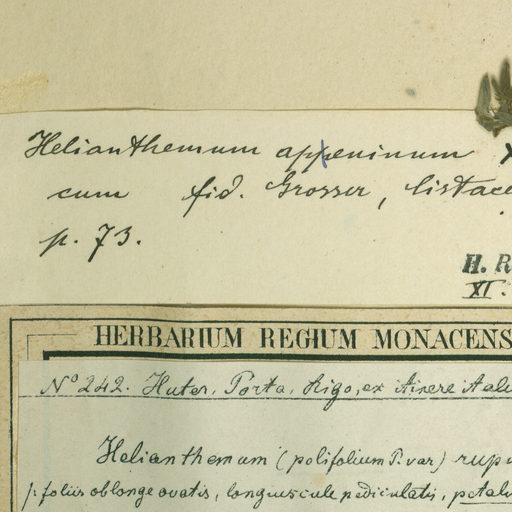 Helianthemum appeninum ×
cum fid. Grosser, Cistace
p. 73.
H. R
XI.
HERBARIUM REGIUM MONACENS
No 242. Huter, Porta, Rigo, ex itinere
Helianthemum (polifolium P. var) rup
foliis oblonge ovatis, longiuscule pediculatis, petal